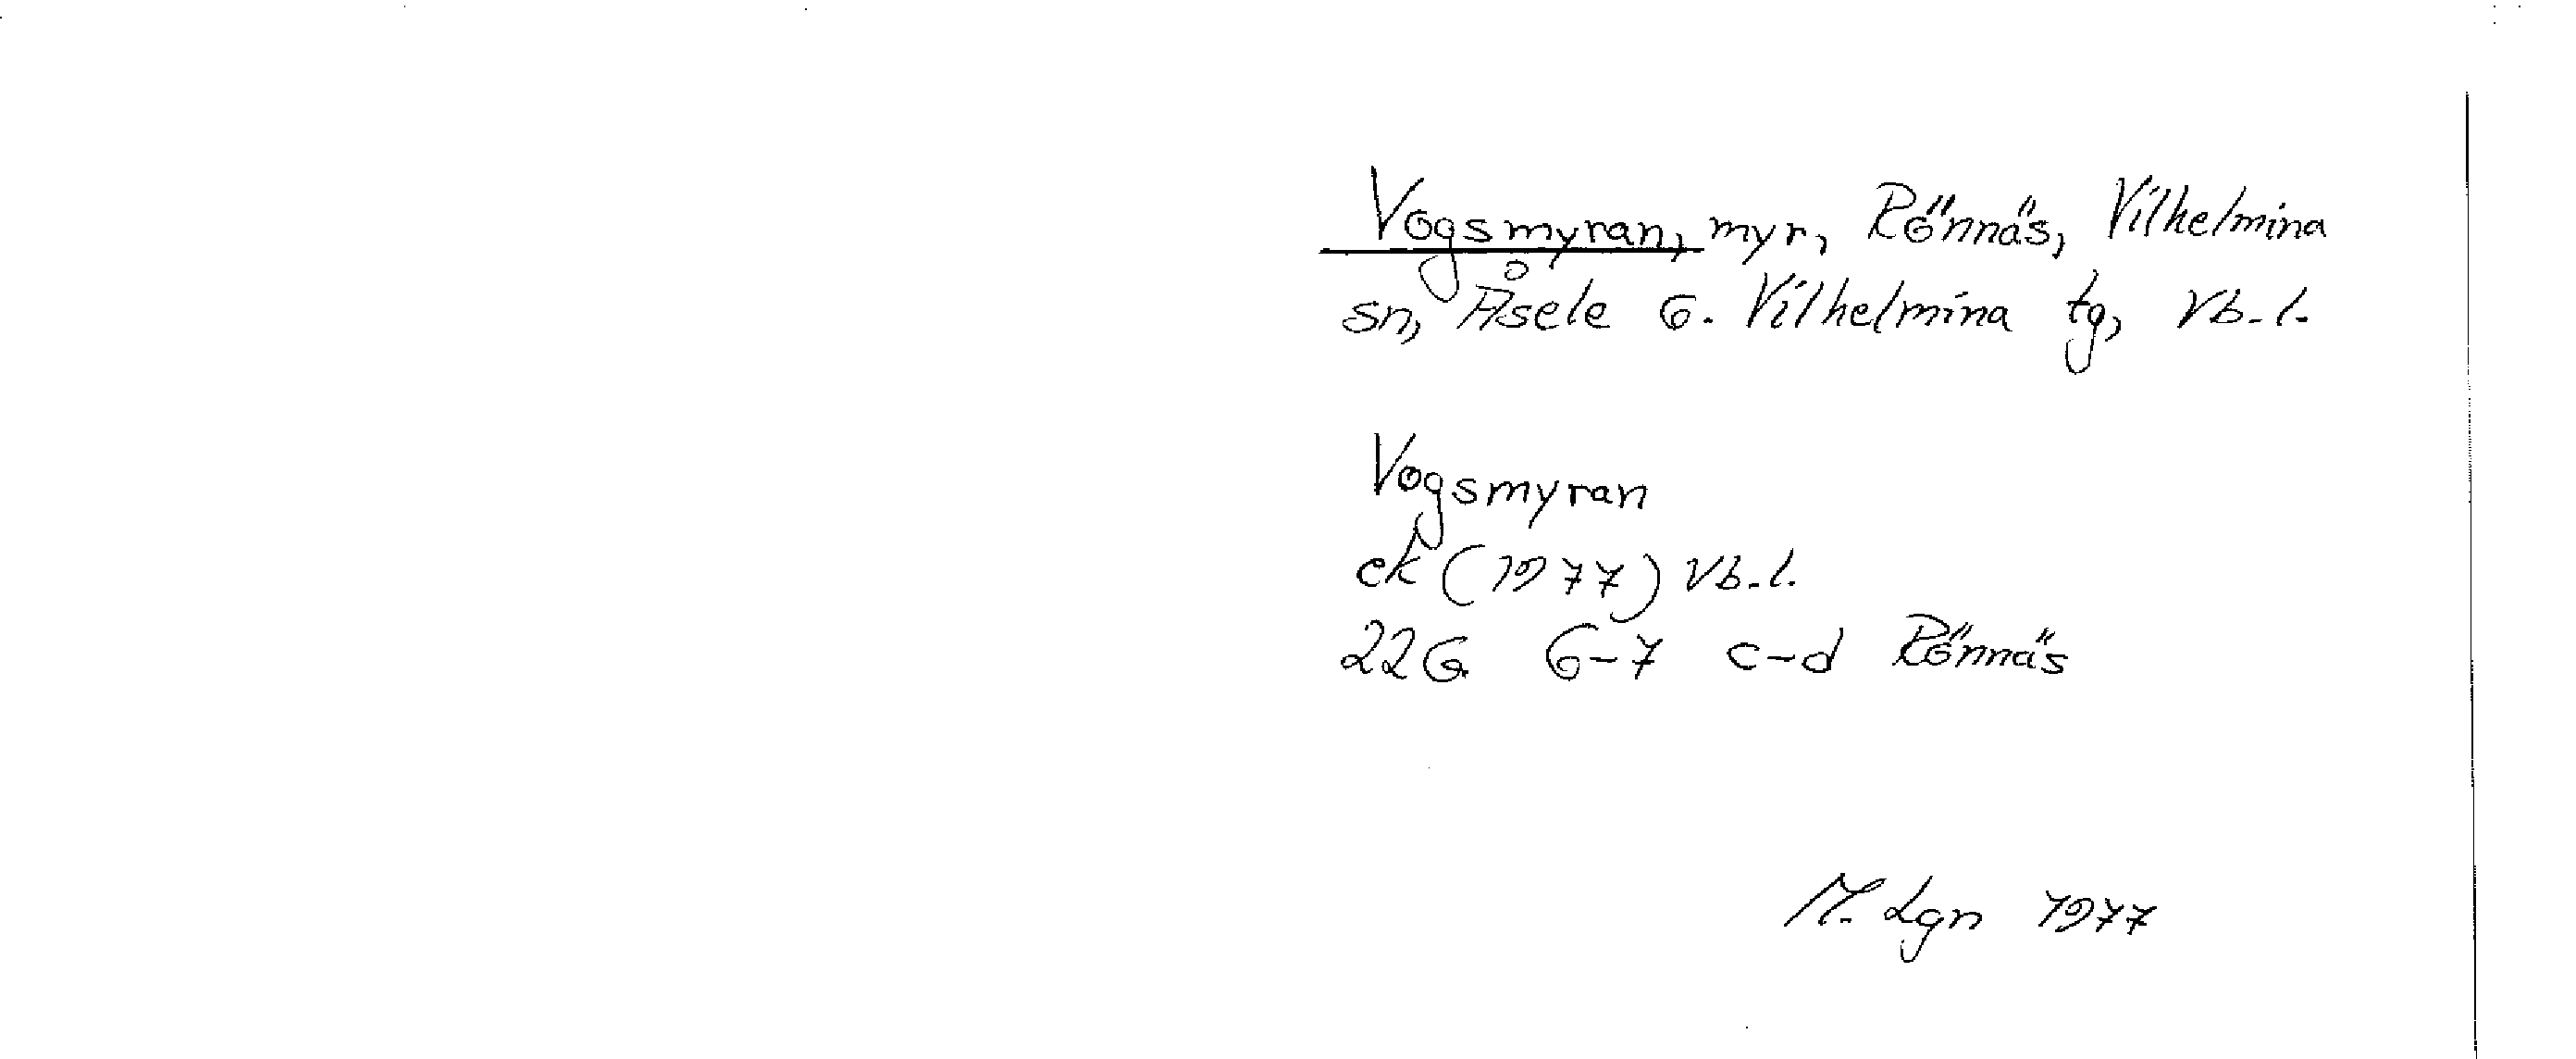 Vogsmyran, myr, Rönnäs, Vilhelmina
sn, Åsele o. Vilhelmina tg, Vb.l.
Vogsmyran
ek (1977) Vb.l.
22G 6-7 c-d Rönnäs
M. Lgn 1977